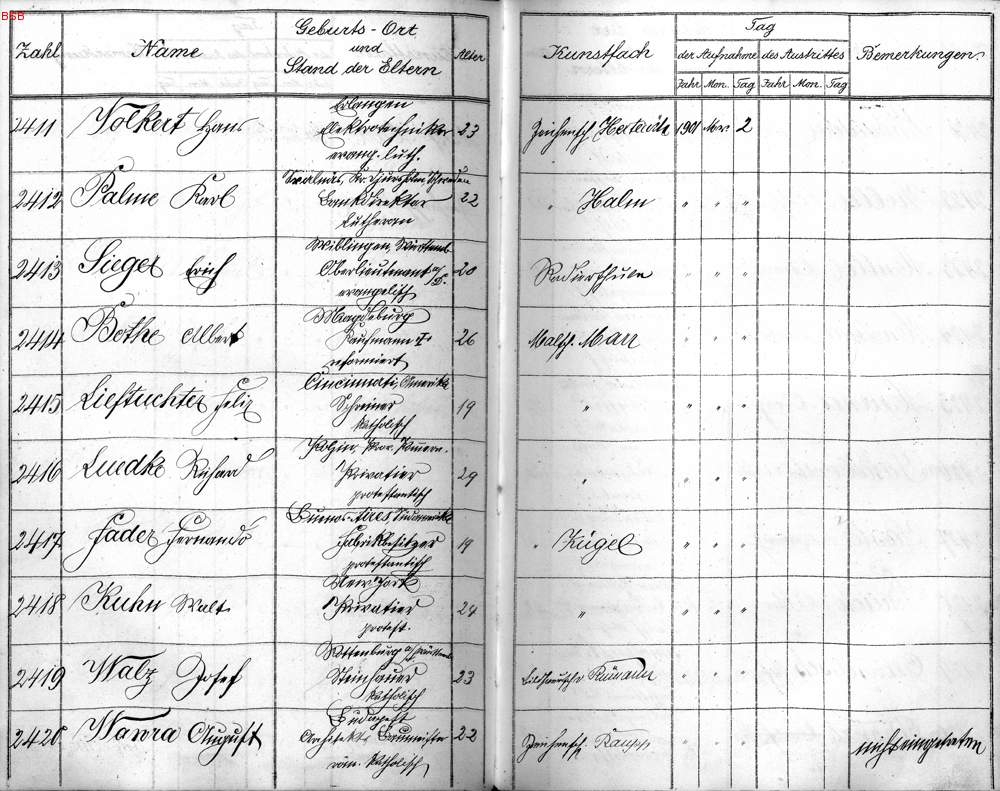 BSB
Zahl Name Geburts-Ort und Stand der Eltern Alter Kunstfach Tag der Aufnahme des Austrittes Bemerkungen.
Jahr Mon. Tag Jahr Mon. Tag
Erlangen
2411 Volkert Hans Elektrotechniker 23 Zeichensch. Herterich 1901 2
evang. luth.
2412 Palme Karl Bankdirektor 22 " Halm " " "
Lutheran
Wiblingen,
2413 Sieger Erich Oberlieutenant a/D. 20 Radierschule " " "
evangelisch
Magdeburg
2414 Bethe Albert Kaufmann 26 Malsch. Marr " " "
reformiert
Cincinnati, Amerika
2415 Felix Schreiner 19 " " " "
katholisch
2416 Luedke Richard Privatier 29 " " " "
protestantisch
Buenos-Aires, Südamerika
2417 Fader Fernando Fabrikbesitzer 19 " Zügel " " "
protestantisch
New York
2418 Kuhn Walt Privatier 24 " " " "
protest.
Rottenburg a/
2419 Walz Josef Steinhauer 23 Bildhauersch. Rümann " " "
katholisch
Budapest
2420 Wanra August Architekt Baumeister 22 Zeichensch. Raupp " " " nicht eingetreten
röm. katholisch